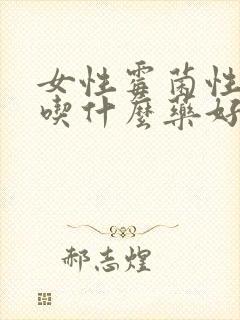 女性霉菌性
喫什麼藥好
郝志煌